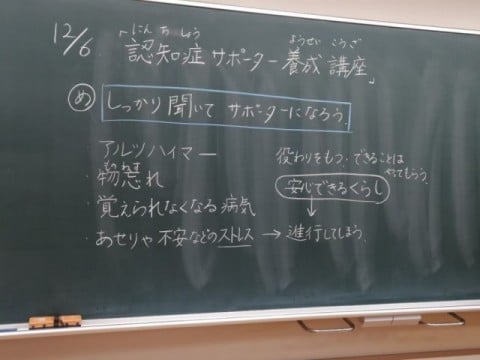 12/6
にんちしょう ようせい こうざ
「認知症サポーター養成講座」
め しっかり聞いてサポーターになろう。
・アルツハイマー
ものわす
・物忘れ
・覚えられなくなる病気
・あせりや不安などのストレス→進行してしまう。
役わりをもつ・できることは
やってもらう。
安心できるくらし